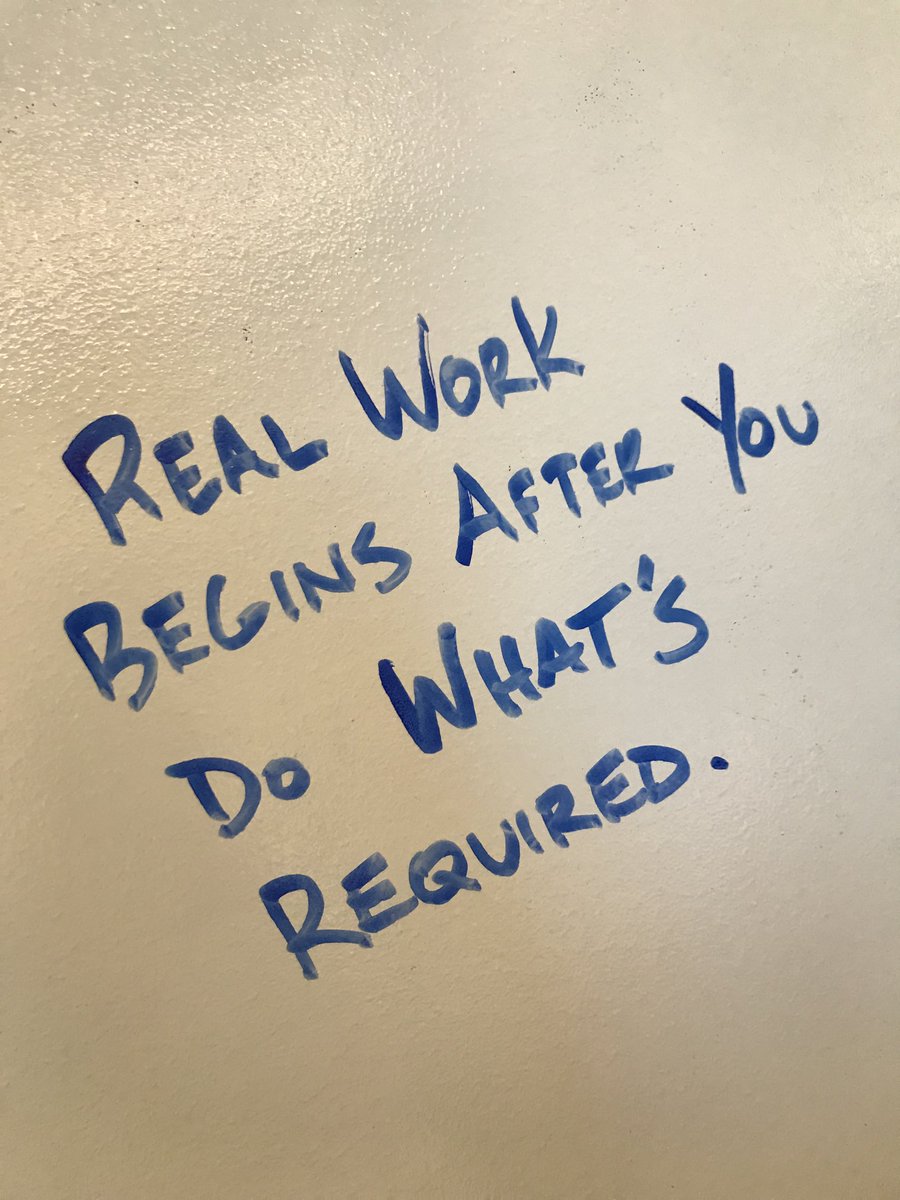 REAL WORK
BEGINS AFTER YOU
DO WHAT'S
REQUIRED.